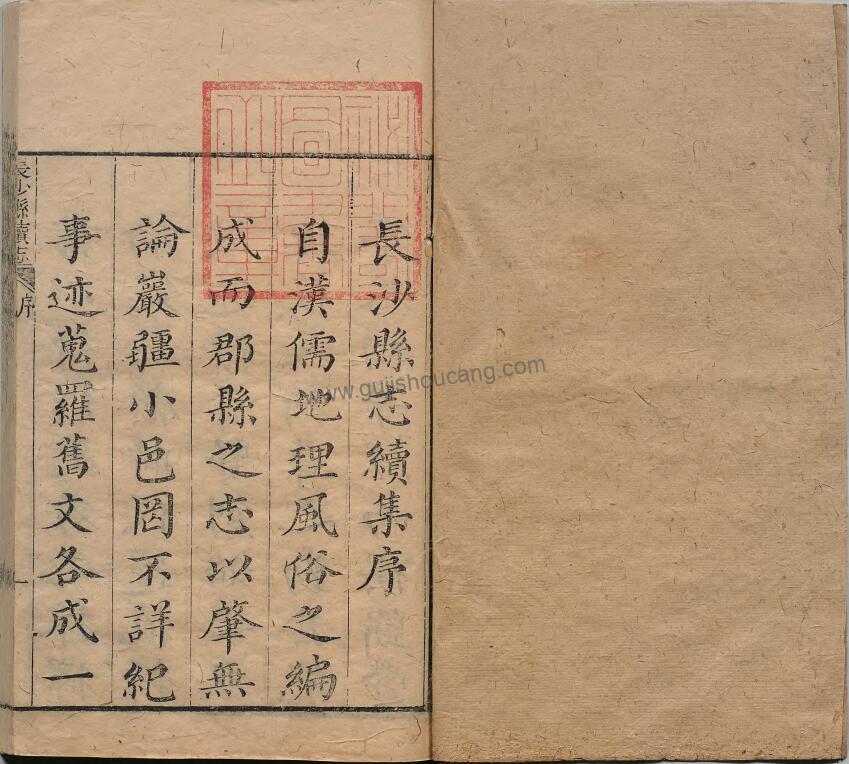 長沙縣志續集序
自漢儒地理風俗之編
成而郡縣之志以肇無
論巖疆小邑罔不詳紀
事迹蒐羅舊文各成一
長沙縣續志
序
一
www.gujishoucang.com